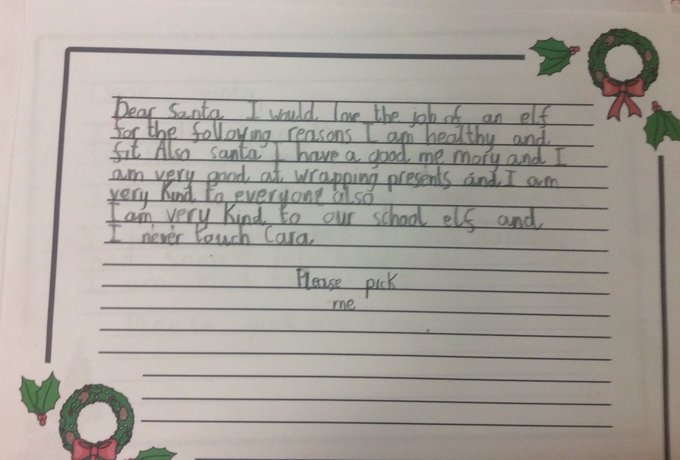 Dear Santa I would love the job of an elf
for the following reasons I am healthy and
fit Also santa I have a good me mory and I
am very good at wrapping presents and I am
very kind to everyone also
I am very kind to our school elf and
I never touch Cara.
Please pick
me